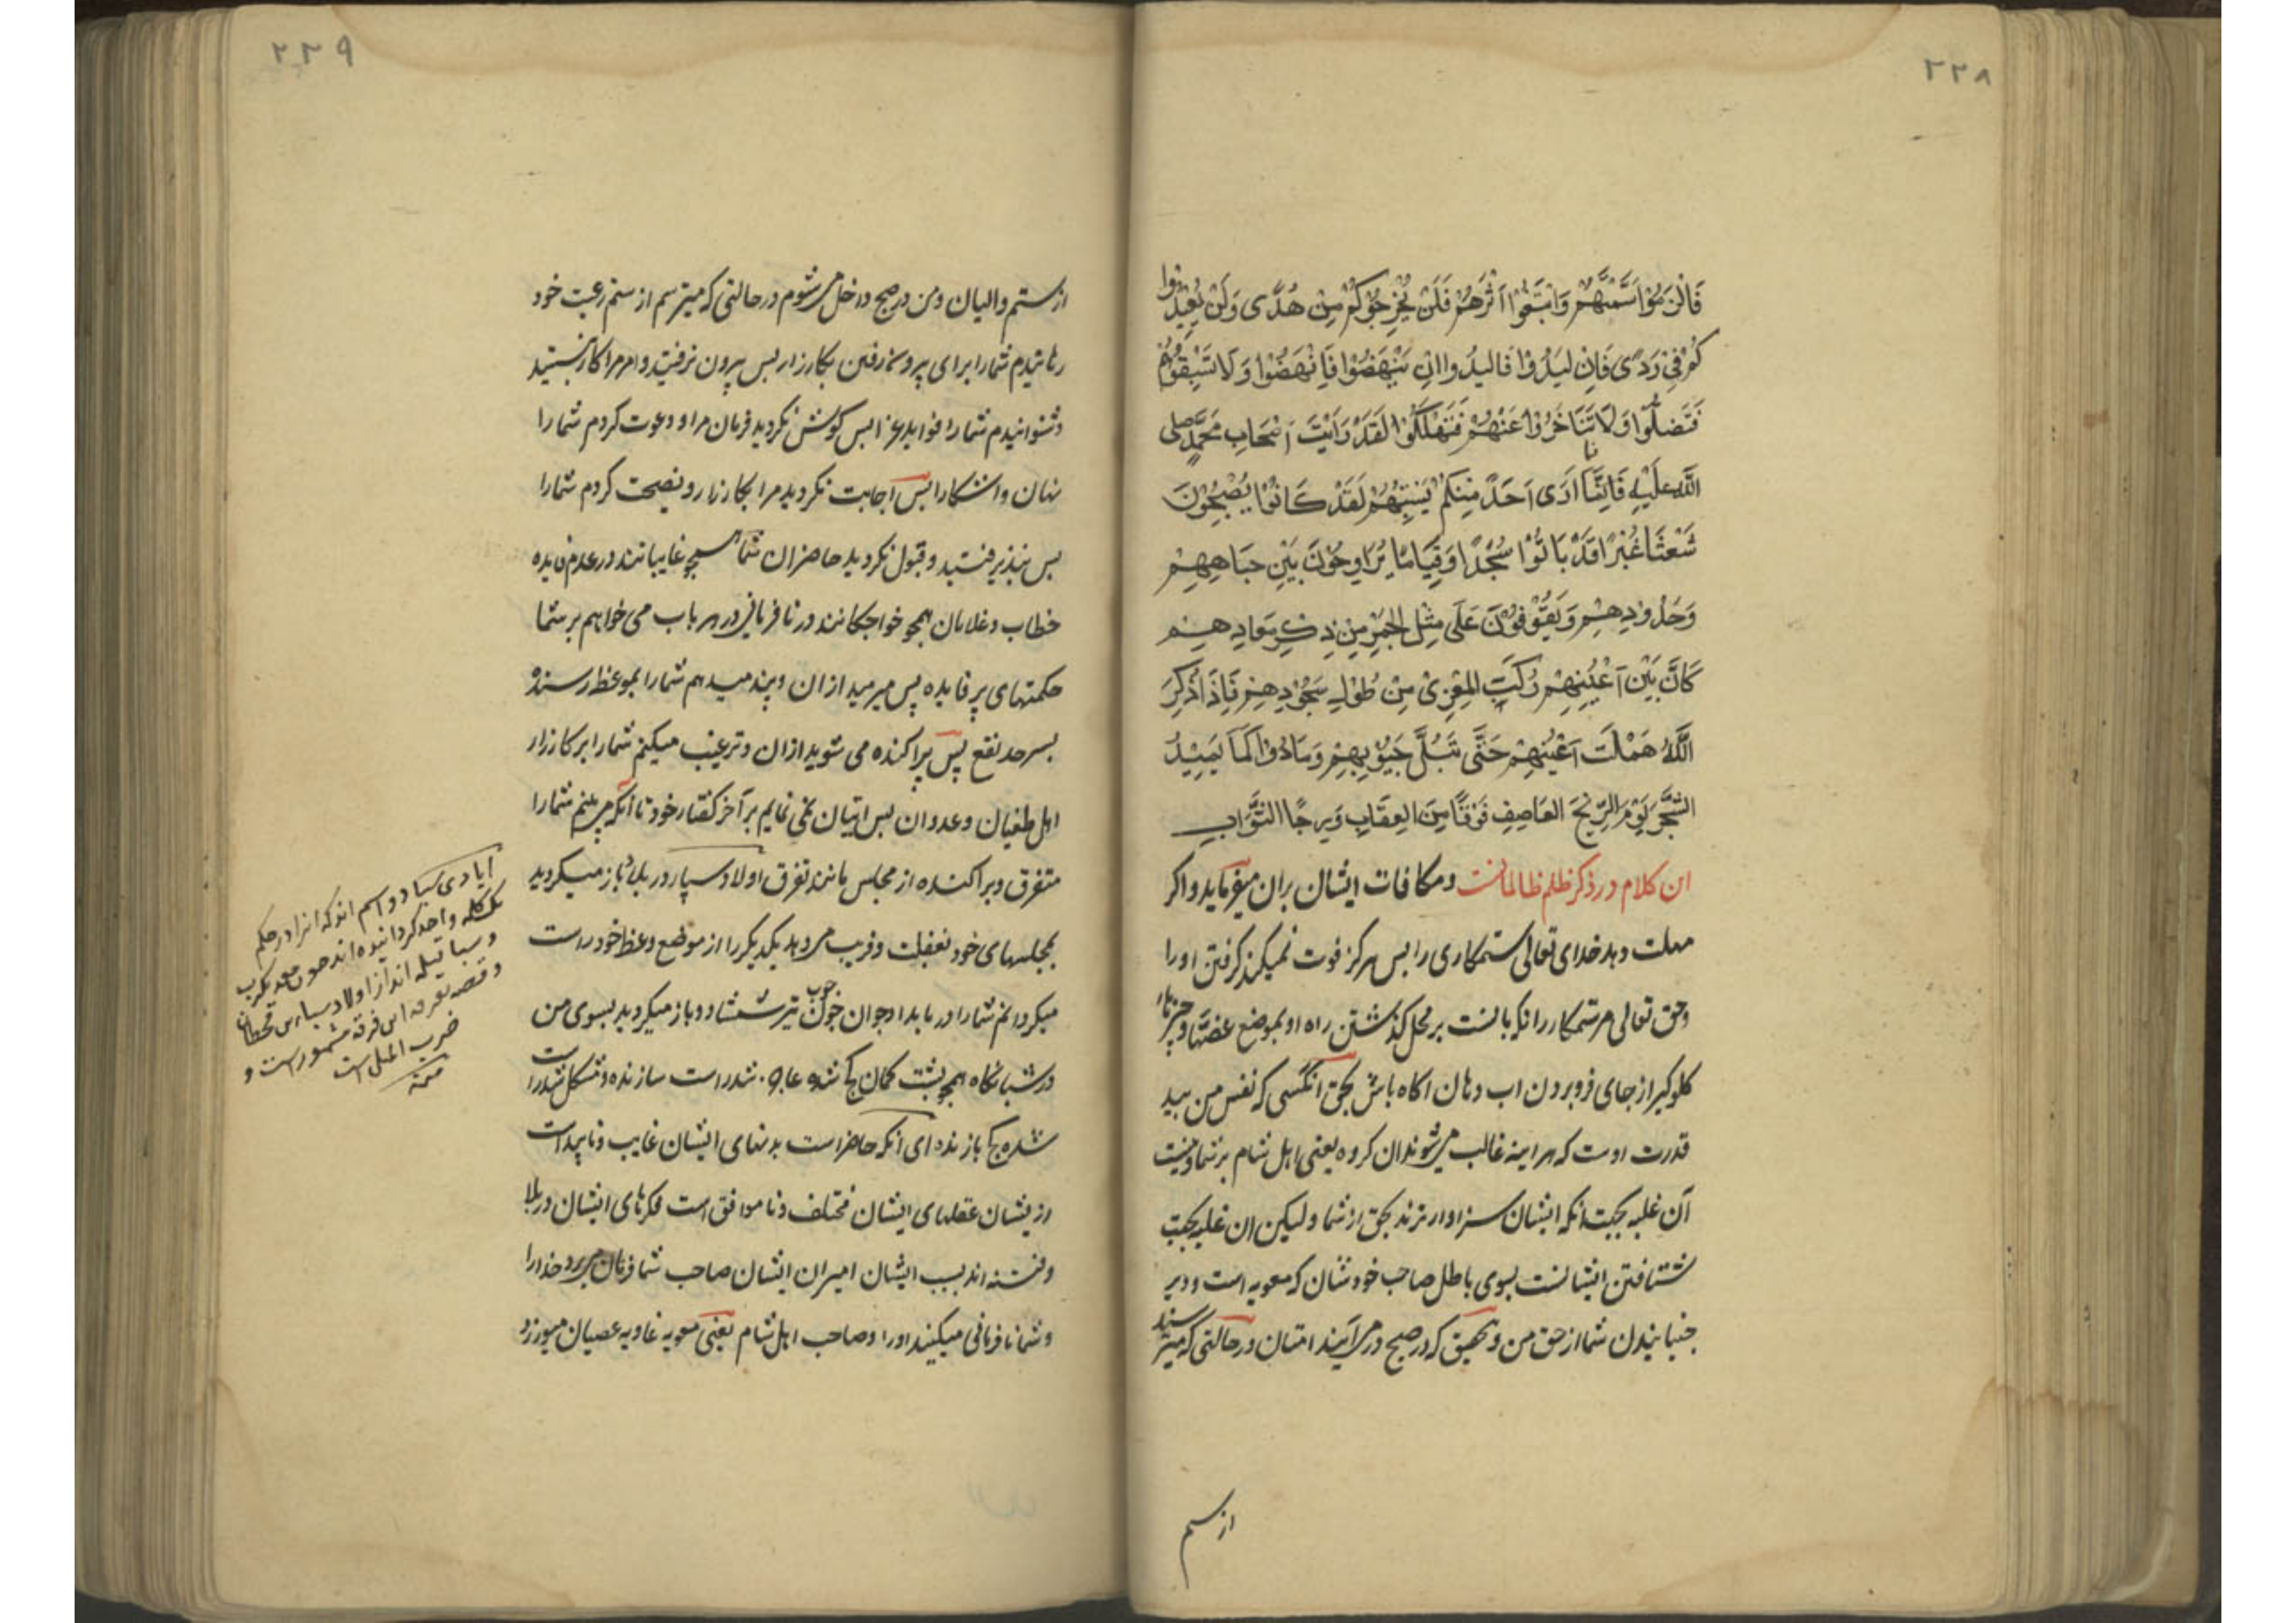 ۲۲۸
فَالْزَمُوْا سَمْتَهُمْ وَاتَّبِعُوْا اَثَرَهُمْ فَلَنْ يُخْرِجُوْكُمْ مِنْ هُدًى وَلَنْ يُعِيْدُوا
كُمْ فِيْ رَدًى فَاِنْ لَبَدُوْا فَالبدُوا وان نَهَضُوْا فَانْهَضُوْا وَلَا تَسْبِقُوهُمْ
فَتَضِلُّوا وَلَا تَتَاَخَّرُوْا عَنْهُمْ فَتَهْلِكُوْا لَقَدْ رَاَيْتَ اَصْحَابَ مُحَمَّدٍ صلى
اللّٰه عَلَيْهِ فَمَا اَرَى اَحَدًا مِنْكُمْ يُشْبِهُهُمْ لَقَدْ كَانُوْا يُصْبِحُوْنَ
شُعْثًا غُبْرًا قَدْ بَاتُوْا سُجَّدًا وَقِيَامًا يُرَاوِحُوْنَ بَيْنَ جِبَاهِهِمْ
وَخُدُوْدِهِمْ وَيَقِفُوْنَ عَلَى مِثْلِ الجَمْرِ مِنْ ذِكْرِ مَعَادِهِمْ
كَاَنَّ بَيْنَ اَعْيُنِهِمْ رُكَبَ المِعْزٰى مِنْ طُوْلِ سُجُوْدِهِمْ فَاِذَا ذُكِرَ
اللّٰهُ هَمَلَتْ اَعْيُنُهُمْ حَتّٰى تَبُلَّ جُيُوْبَهُمْ وَمَادُوْا كَمَا يَمِيْدُ
الشَّجَرُ يَوْمَ الرِّيْحِ العَاصِفِ خَوْفًا مِنَ العِقَابِ وَرَجَاءً لِلثَّوَابِ
این کلام در ذکر ظلم ظالمانست ومکافات ایشان بران میفرماید واکر
مهلت دهد خدای تعالی ستمکاری را بس هرکز فوت نمیکند کرفتن او را
وحق تعالی مر ستمکار را نکهبانست بر محل کذشتن راه او بموضع غصه
کلوکیر از جای فرو بردن اب دهان اکاه باش بحق انکسی که نفس من بید
قدرت اوست که هراینه غالب میشوند ان کروه یعنی اهل شام بر شما ونیست
آن غلبه بجهت انکه ایشان سزاوارترند بحق از شما ولیکن ان غلبه بجهت
شتافتن ایشانست بسوی باطل صاحب خودشان که معویه است ودیر
جنبانیدن شما از حق من وتحقیق که در صبح درمی آیند امتان درحالتی که میترسند
از ستم
۲۲۹
از ستم والیان ومن در صبح داخل میشوم درحالتی که میترسم از ستم رعیت خود
شما را برای بیرون رفتن بکارزار بس بیرون نرفتید وامر مرا کار نبستید
وشنوانیدم شما را بس کوش نکردید فرمان مرا ودعوت کردم شما را
نهان واشکارا بس اجابت نکردید مرا بکارزار ونصیحت کردم شما را
بس نپذیرفتید وقبول نکردید حاضران شما همچو غایبانند در عدم فایده
خطاب وغلامان همچو خواجکانند در نافرمانی در هر باب می خواهم بر شما
حکمتهای پر فایده پس میرمید ازان وپند میدهم شما را بموعظه رسنده
بسرحد نفع پس پراکنده می شوید ازان وترغیب میکنم شما را بر کارزار
اهل طغیان وعدوان بس اتیان نمی نمایم بر آخر کفتار خود تا آنکه می بینم شما را
متفرق وپراکنده از مجلس مانند تفرق اولاد سبا در بلاد باز میکردید
بمجلسهای خود بغفلت وفریب می دهید یکدیکر را از موضع وعظ خود راست
میکردانم شما را در بامداد چون چوب تیر شمشاد وباز میکردید بسوی من
در شبانکاه همچو پشت کمان کج شده عاجز شد راست سازنده ومشکل شد راست
شده کج بازنده ای انکه حاضر است بدنهای ایشان غایب وناپیداست
ازیشان عقلهای ایشان مختلف وناموافق است فکرهای ایشان در بلا
وفتنه اند بسبب ایشان امیران ایشان صاحب شما فرمان می برد خدا را
وشما نافرمانی میکنید او را وصاحب اهل شام یعنی معویه غاویه عصیان میورزد
ایادی سبا دو اسم اند که انرا در حکم
یک کلمه واحد کردانیده اند چون معدیکرب
وسبا قبیله اند از اولاد سباء بن قحطان
وقصه تفرقه این فرقه مشهور است و
ضرب المثل است
منه